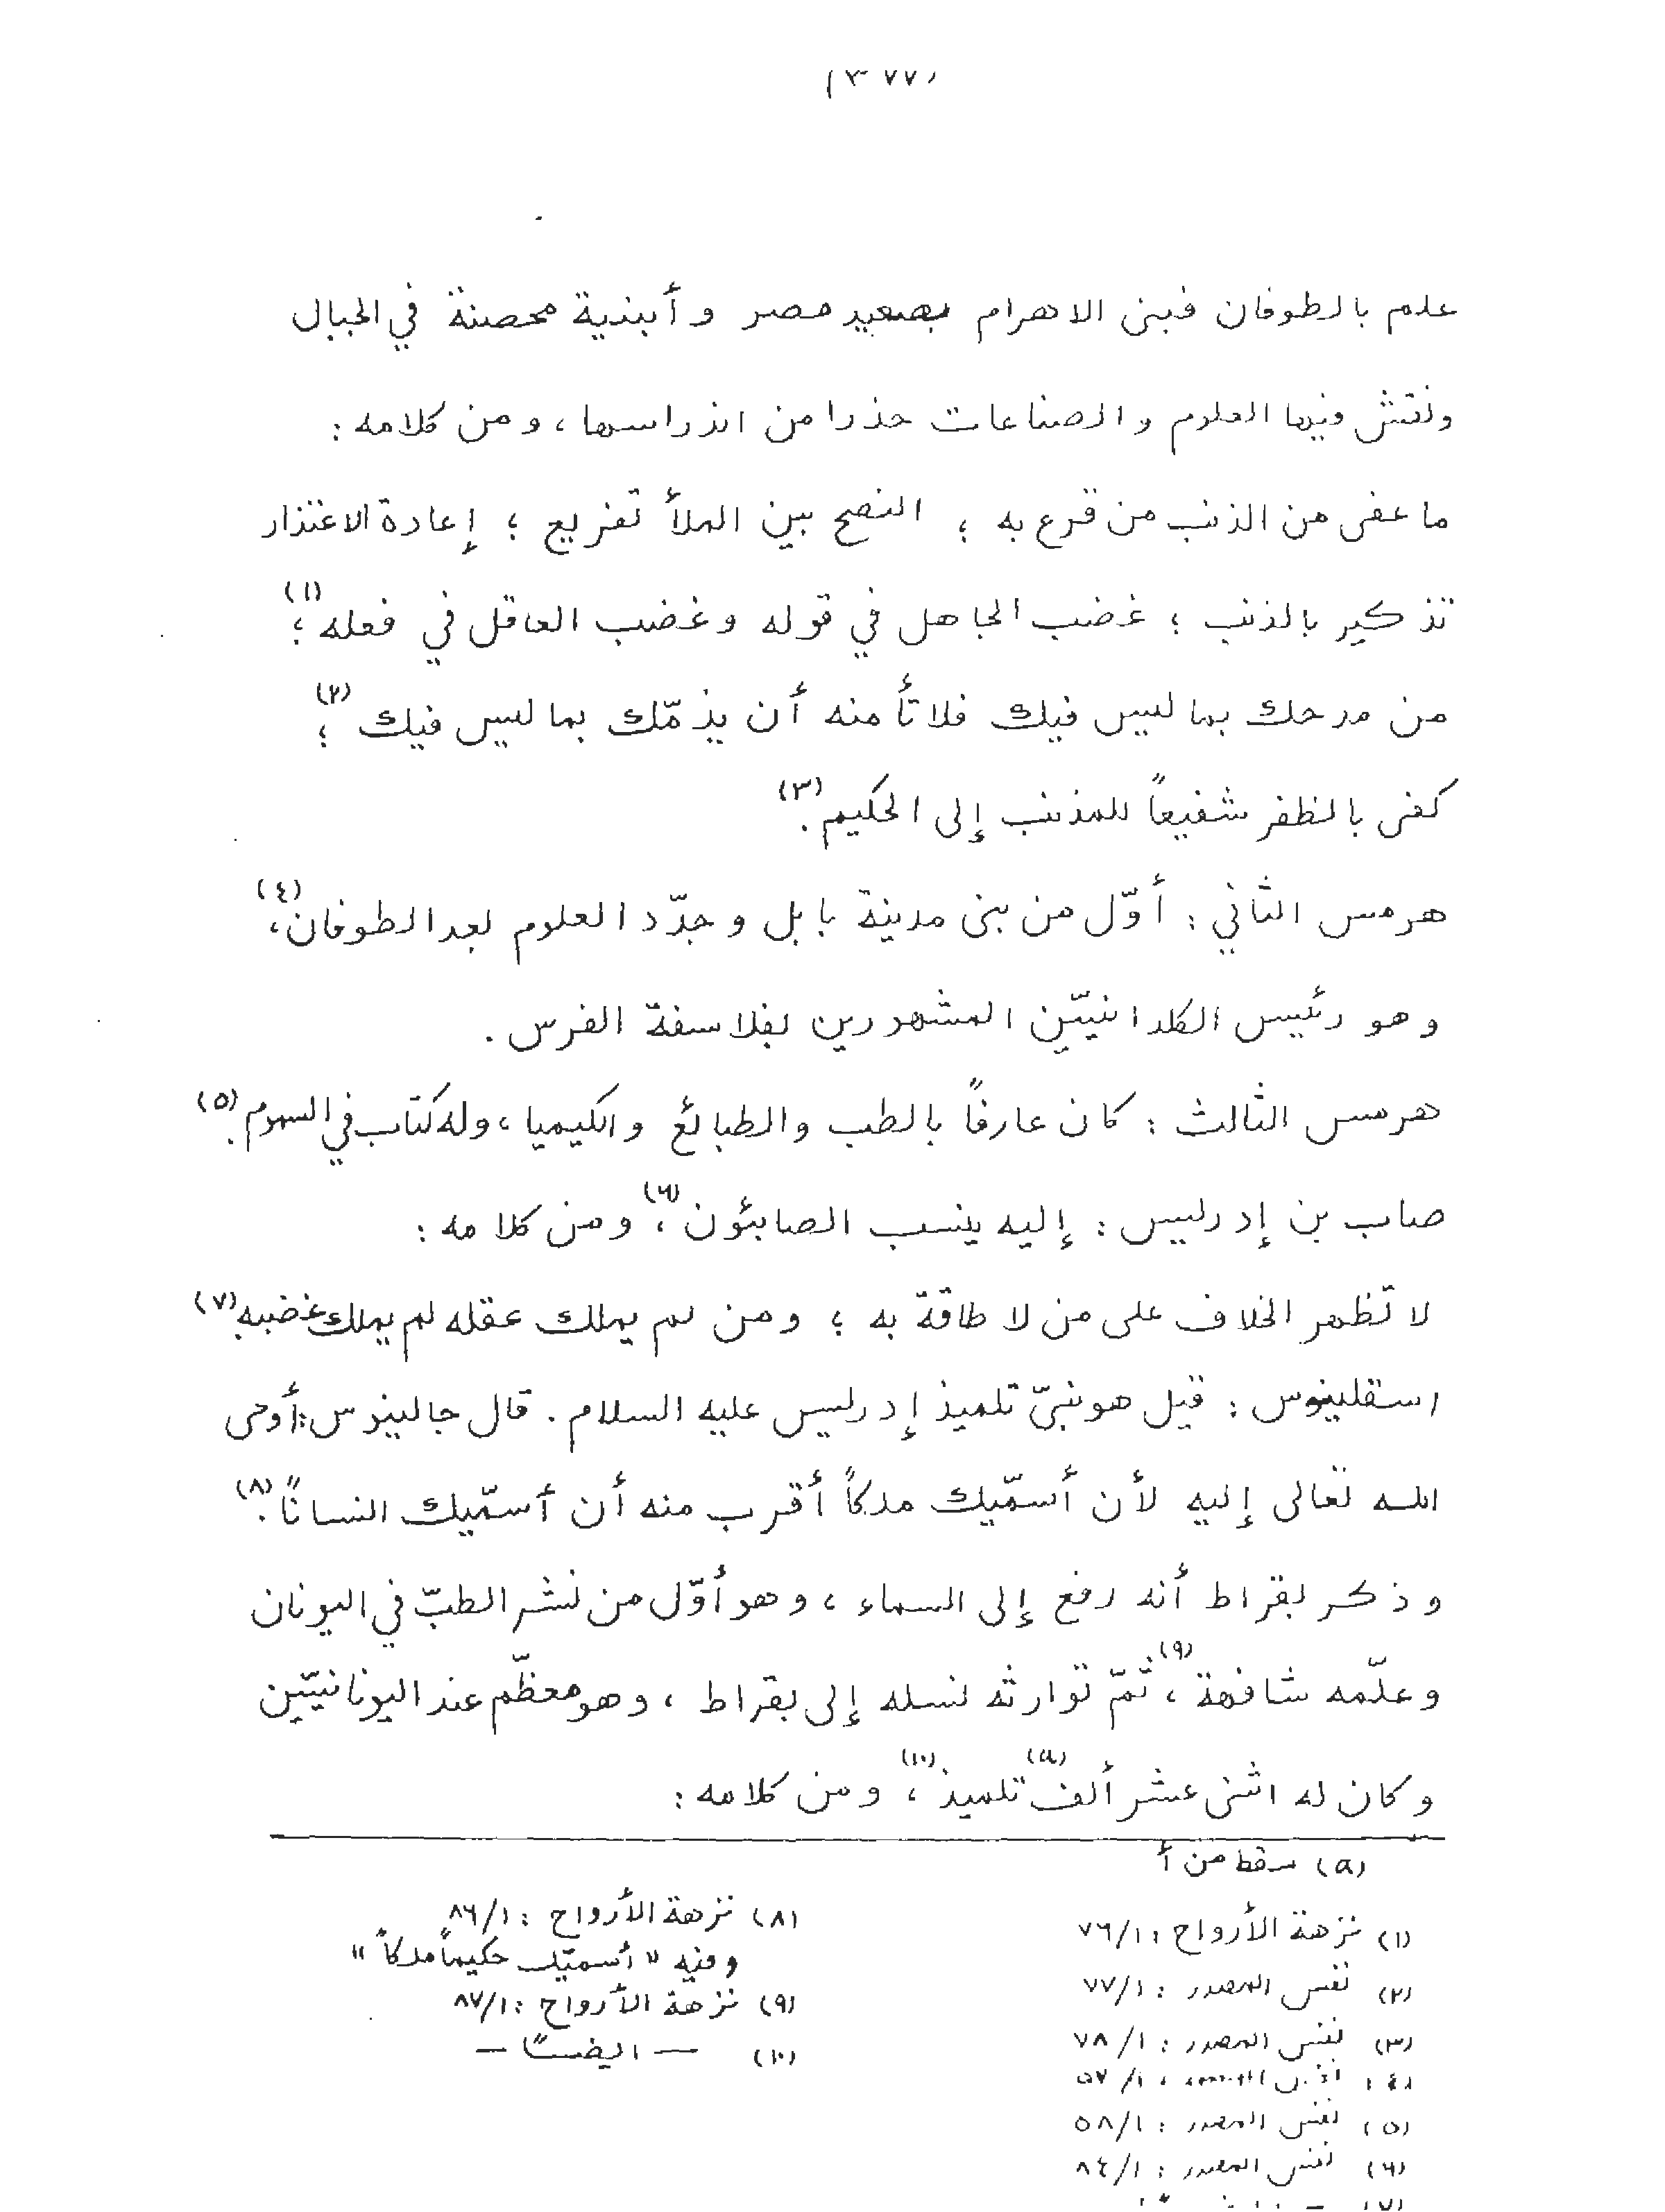 (٣٧٧)
علم بالطوفان فبنى الاهرام بصعيد مصر وأبنية محصنة في الجبال
ونقش فيها العلوم والصناعات حذرا من اندراسها، ومن كلامه :
ما عفى من الذنب من قرع به ؛ النصح بين الملأ تقريع ؛ إعادة الاعتذار
تذكير بالذنب ؛ غضب الجاهل في قوله وغضب العاقل في فعله (١)؛
من مدحك بما ليس فيك فلا تأمنه أن يذمّك بما ليس فيك (٢)؛
كفى بالظفر شفيعاً للمذنب إلى الحكيم (٣).
هرمس الثاني : أوّل من بنى مدينة بابل وجدّد العلوم بعد الطوفان (٤)،
وهو رئيس الكلدانيّين المشهورين بفلاسفة الفرس .
هرمس الثالث : كان عارفاً بالطب والطبائع والكيميا، وله كتاب في السموم (٥).
صاب بن إدريس : إليه ينسب الصابئون (٦)، ومن كلامه :
لا تظهر الخلاف على من لا طاقة به ؛ ومن لم يملك عقله لم يملك غضبه (٧)
اسقلينوس : قيل هو نبيّ تلميذ إدريس عليه السلام . قال جالينوس : أوحى
الله تعالى إليه لأن أسمّيك ملكاً أقرب منه أن أسمّيك انساناً (٨).
وذكر بقراط أنه رفع إلى السماء ، وهو أوّل من نشر الطبّ في اليونان
وعلّمه شافهة (٩)، ثمّ توارثه نسله إلى بقراط ، وهو معظّم عند اليونانيّين
وكان له اثنى عشر ألف (a) تلميذ (١٠)، ومن كلامه :
(a) سقط من أ
(١) نزهة الأرواح : ٧٦/١
(٢) نفس المصدر : ٧٧/١
(٣) نفس المصدر : ٧٨/١
(٤) نفس المصدر : ٥٧/١
(٥) نفس المصدر : ٥٨/١
(٦) نفس المصدر : ٨٤/١
(٧)
(٨) نزهة الأرواح : ٨٦/١
وفيه « أسميّك حكيماً ملكاً »
(٩) نزهة الأرواح : ٨٧/١
(١٠) — ايضـــاً —